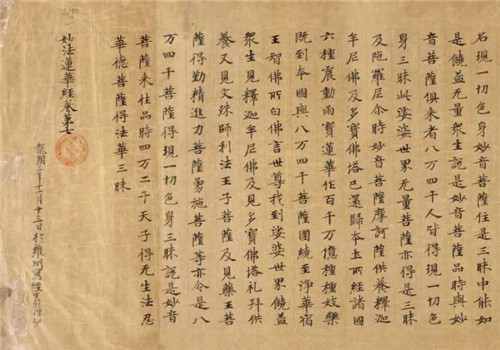 名現一切色身妙音菩薩住三昧中能如
是饒益无量眾生說是妙音菩薩品時與妙
音菩薩俱來者八万四千人皆得現一切色
身三昧此娑婆世界无量菩薩亦得是三昧
及陁羅尼尒時妙音菩薩摩訶薩供養釋迦
牟尼佛及多寶佛塔已還歸本土所經諸國
六種震動雨寶蓮華作百千万億種種妓樂
既到本國與八万四千菩薩圍繞至淨華宿
王智佛所白佛言世尊我到娑婆世界饒益
眾生見釋迦牟尼佛及見多寶佛塔礼拜供
養又見文殊師利法王子菩薩及見藥王菩
薩得勤精進力菩薩勇施菩薩等亦令是八
万四千菩薩得現一切色身三昧說是妙音
菩薩来往品時四万二千天子得无生法忍
華德菩薩得法華三昧
妙法蓮華經卷第七
龍朔三年十一月十三日於雍州寫經生